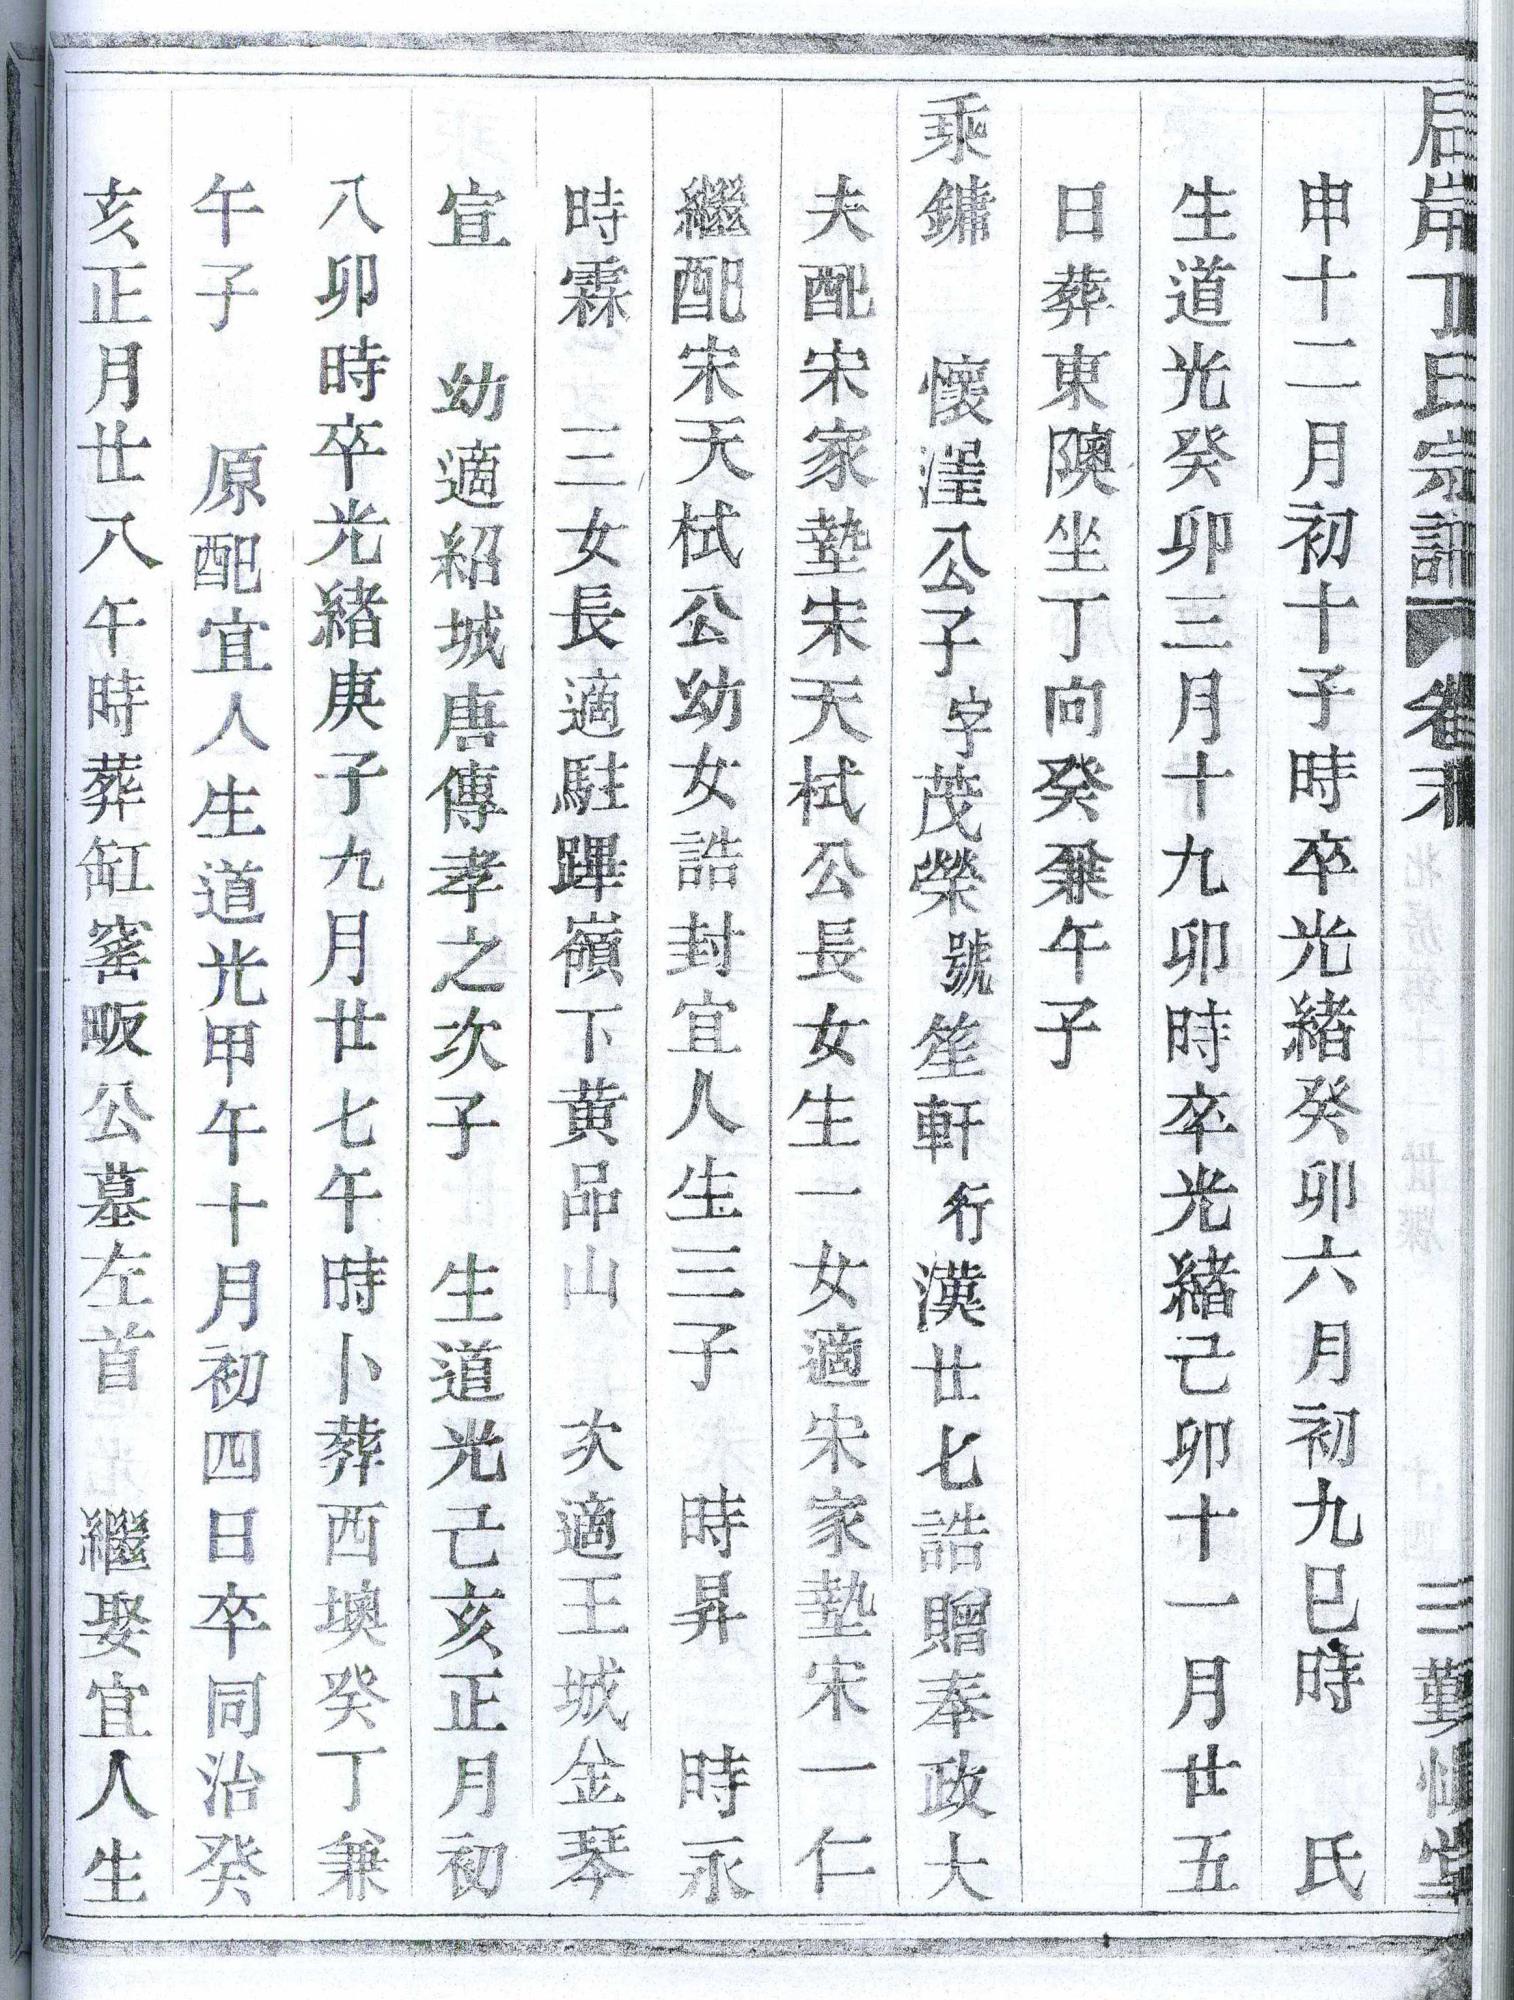 后岸丁氏宗譜 卷末 三勤慎堂
申十二月初十子時卒光緒癸卯六月初九巳時 氏
生道光癸卯三月十九卯時卒光緒己卯十一月廿五
日葬東隩坐丁向癸兼午子
乘鏞 懷洭公子字茂榮號笙軒行漢廿七誥贈奉政大
夫配宋家墊宋天栻公長女生一女適宋家墊宋一仁
繼配宋天栻公幼女誥封宜人生三子 時昇 時永
時霖 三女長適駐蹕嶺下黃品山 次適王城金琴
宣 幼適紹城唐傳孝之次子 生道光己亥正月初
八卯時卒光緒庚子九月廿七午時卜葬西墺癸丁兼
午子 原配宜人生道光甲午十月初四日卒同治癸
亥正月廿八午時葬缸窰畈公墓左首 繼娶宜人生